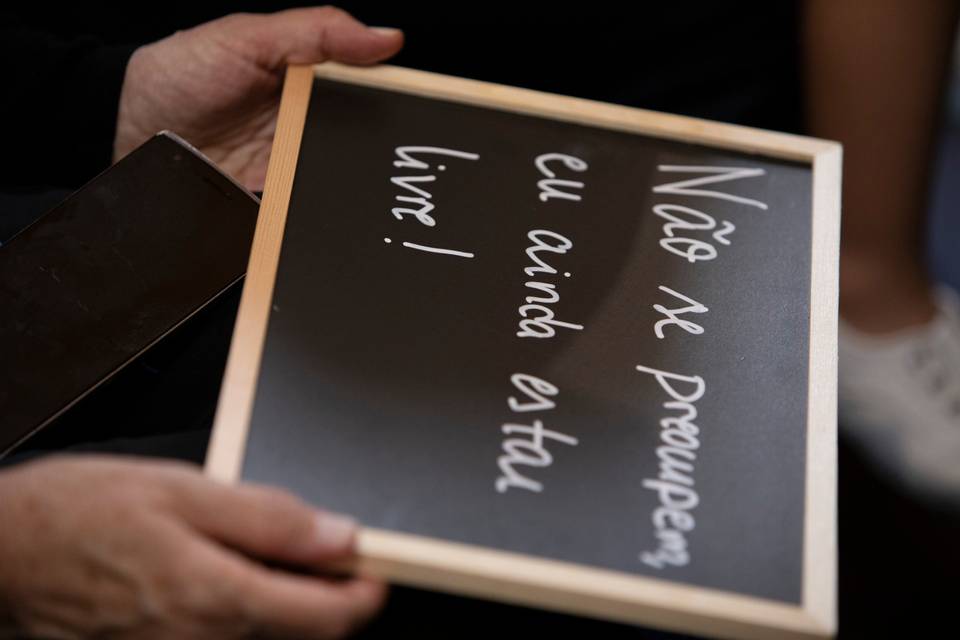 Não se preocupem,
eu ainda estou
livre!